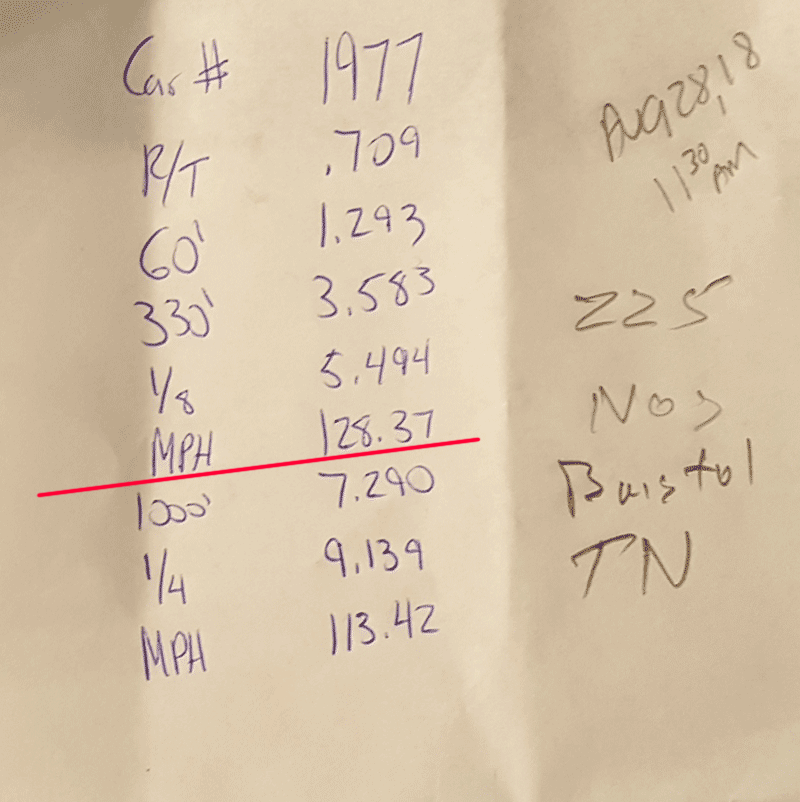 Car # 1977
R/T .709
60' 1.293
330' 3.583
1/8 5.494
MPH 128.37
1000' 7.290
1/4 9.139
MPH 113.42
AUG 28, 18
11 30 AM
225
NOS
Bristol
TN